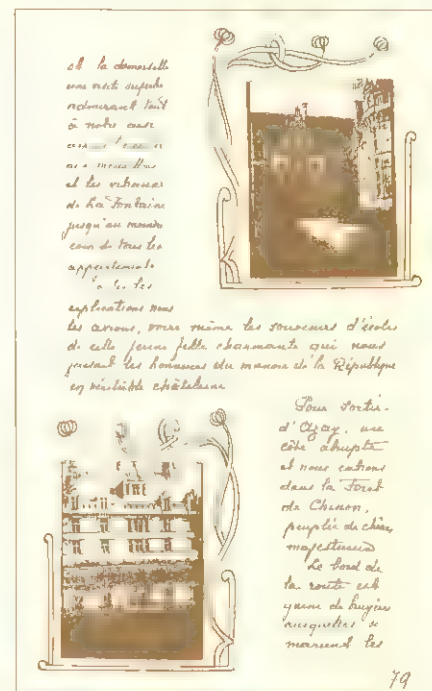 et la demoiselle
une visite superbe
admirant tout
à notre aise
et les
de La Fontaine
jusqu'au moindre
coin de tous les
appartements
les
explications nous
les avions, voire même les souvenirs d'école
de cette jeune fille charmante qui nous
faisait les honneurs du manoir de la République
en véritable châtelaine
Pour sortir
d'Azay, une
côte abrupte
et nous entrons
dans la Forêt
de Chinon,
peuplée de chênes
majestueux
Le bord de
la route est
de bruyères
auxquelles se
marient les
79